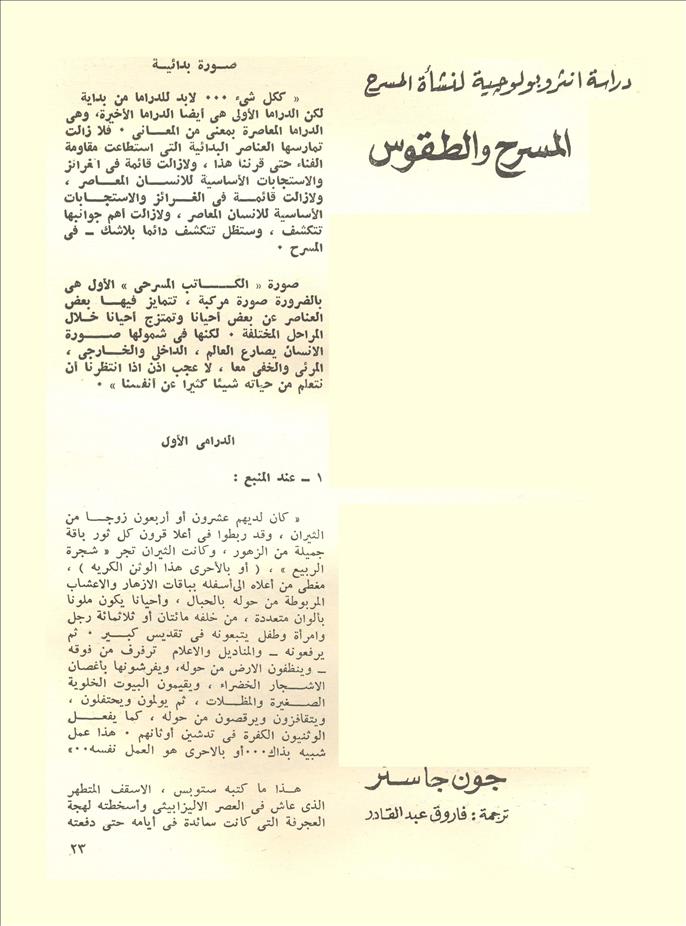 دراسة انثروبولوجية لنشأة المسرح
المسرح والطقوس
جون جاستر
ترجمة : فاروق عبد القادر
صورة بدائية
« ككل شىء ٠٠٠ لابد للدراما من بداية
لكن الدراما الأولى هى أيضا الدراما الأخيرة، وهى
الدراما المعاصرة بمعنى من المعانى ٠ فلا زالت
تمارسها العناصر البدائية التى استطاعت مقاومة
الفناء حتى قرننا هذا ، ولازالت قائمة فى الغرائز
والاستجابات الأساسية للانسان المعاصر ،
ولازالت قائمة فى الغرائز والاستجابات
الأساسية للانسان المعاصر ، ولازالت أهم جوانبها
تتكشف ، وستظل تتكشف دائما بلاشك ــ فى
المسرح ٠
صورة « الكاتب المسرحى » الأول هى
بالضرورة صورة مركبة ، تتمايز فيها بعض
العناصر عن بعض أحيانا وتمتزج أحيانا خلال
المراحل المختلفة ٠ لكنها فى شمولها صورة
الانسان يصارع العالم ، الداخلى والخارجى ،
المرئى والخفى معا ، لا عجب اذن اذا انتظرنا أن
نتعلم من حياته شيئا كثيرا عن أنفسنا » ٠
الدرامى الأول
١ ــ عند المنبع :
« كان لديهم عشرون أو أربعون زوجا من
الثيران ، وقد ربطوا فى أعلا قرون كل ثور باقة
جميلة من الزهور ، وكانت الثيران تجر « شجرة
الربيع » ، ( أو بالأحرى هذا الوثن الكريه ) ،
مغطى من أعلاه الى أسفله بباقات الازهار والاعشاب
المربوطة من حوله بالحبال ، وأحيانا يكون ملونا
بألوان متعددة ، من خلفه مائتان أو ثلاثمائة رجل
وامرأة وطفل يتبعونه فى تقديس كبير ٠ ثم
يرفعونه ــ والمناديل والاعلام ترفرف من فوقه
ــ وينظفون الارض من حوله، ويفرشونها بأغصان
الاشجار الخضراء ، ويقيمون البيوت الخلوية
الصغيرة والمظلات ، ثم يولمون ويحتفلون ،
ويتقافزون ويرقصون من حوله ، كما يفعل
الوثنيون الكفرة فى تدشين أوثانهم ٠ هذا عمل
شبيه بذاك٠٠٠أو بالاحرى هو العمل نفسه٠٠»
هذا ما كتبه ستوبس ، الاسقف المتطهر
الذى عاش فى العصر الاليزابيثى وأسخطته لهجة
العجرفة التى كانت سائدة فى أيامه حتى دفعته
٢٣